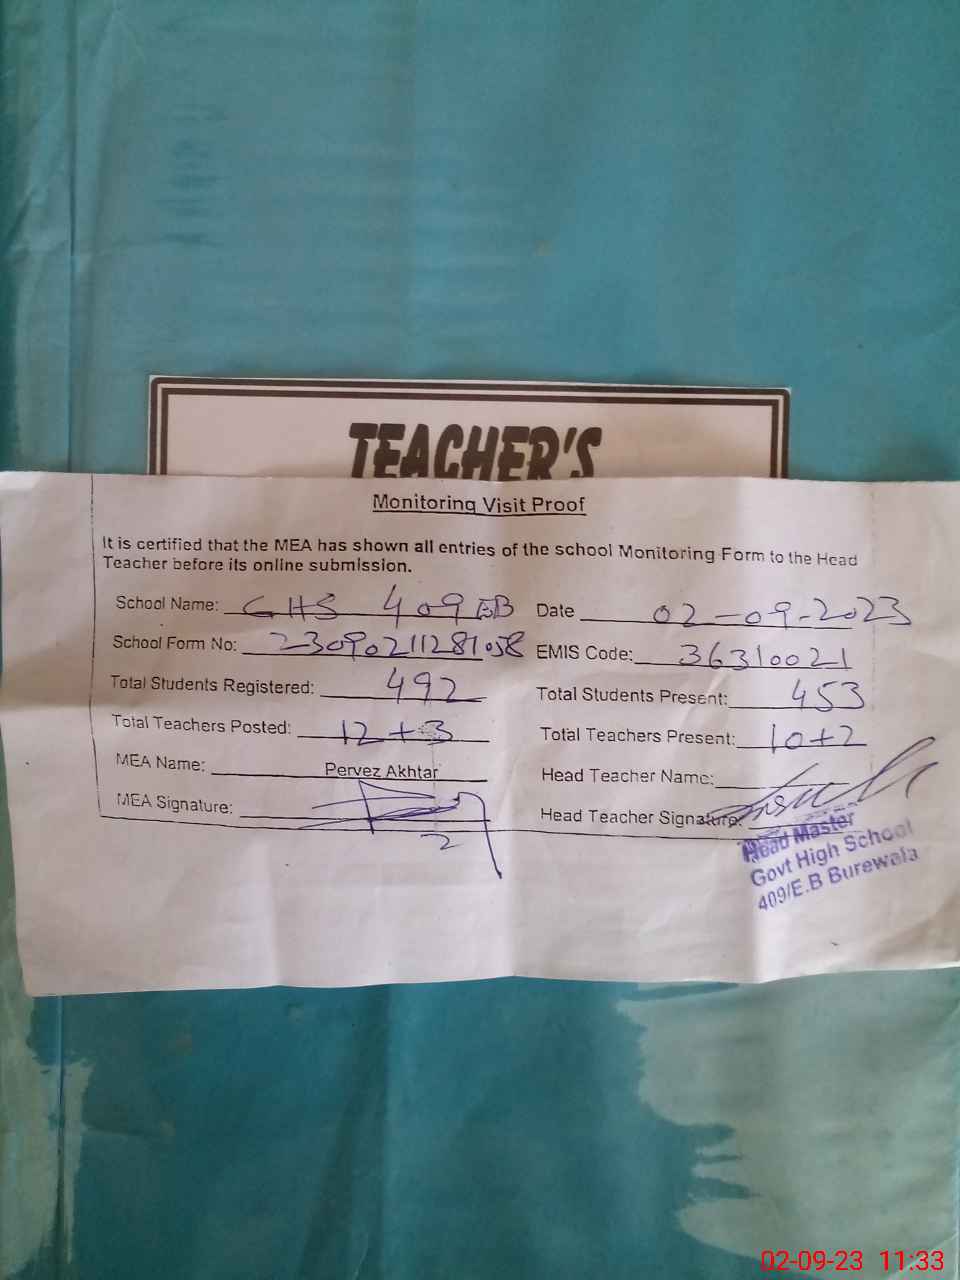 TEACHER'S
Monitoring Visit Proof
It is certified that the MEA has shown all entries of the school Monitoring Form to the Head
Teacher before its online submission.
School Name: GHS 409 EB Date 02-09-2023
School Form No: 23090211281058 EMIS Code: 36310021
Total Students Registered: 492 Total Students Present: 453
Total Teachers Posted: 12+3 Total Teachers Present: 10+2
MEA Name: Pervez Akhtar Head Teacher Name:
MEA Signature: Head Teacher Signature:
Head Master
Govt High School
409/E.B Burewala
02-09-23 11:33